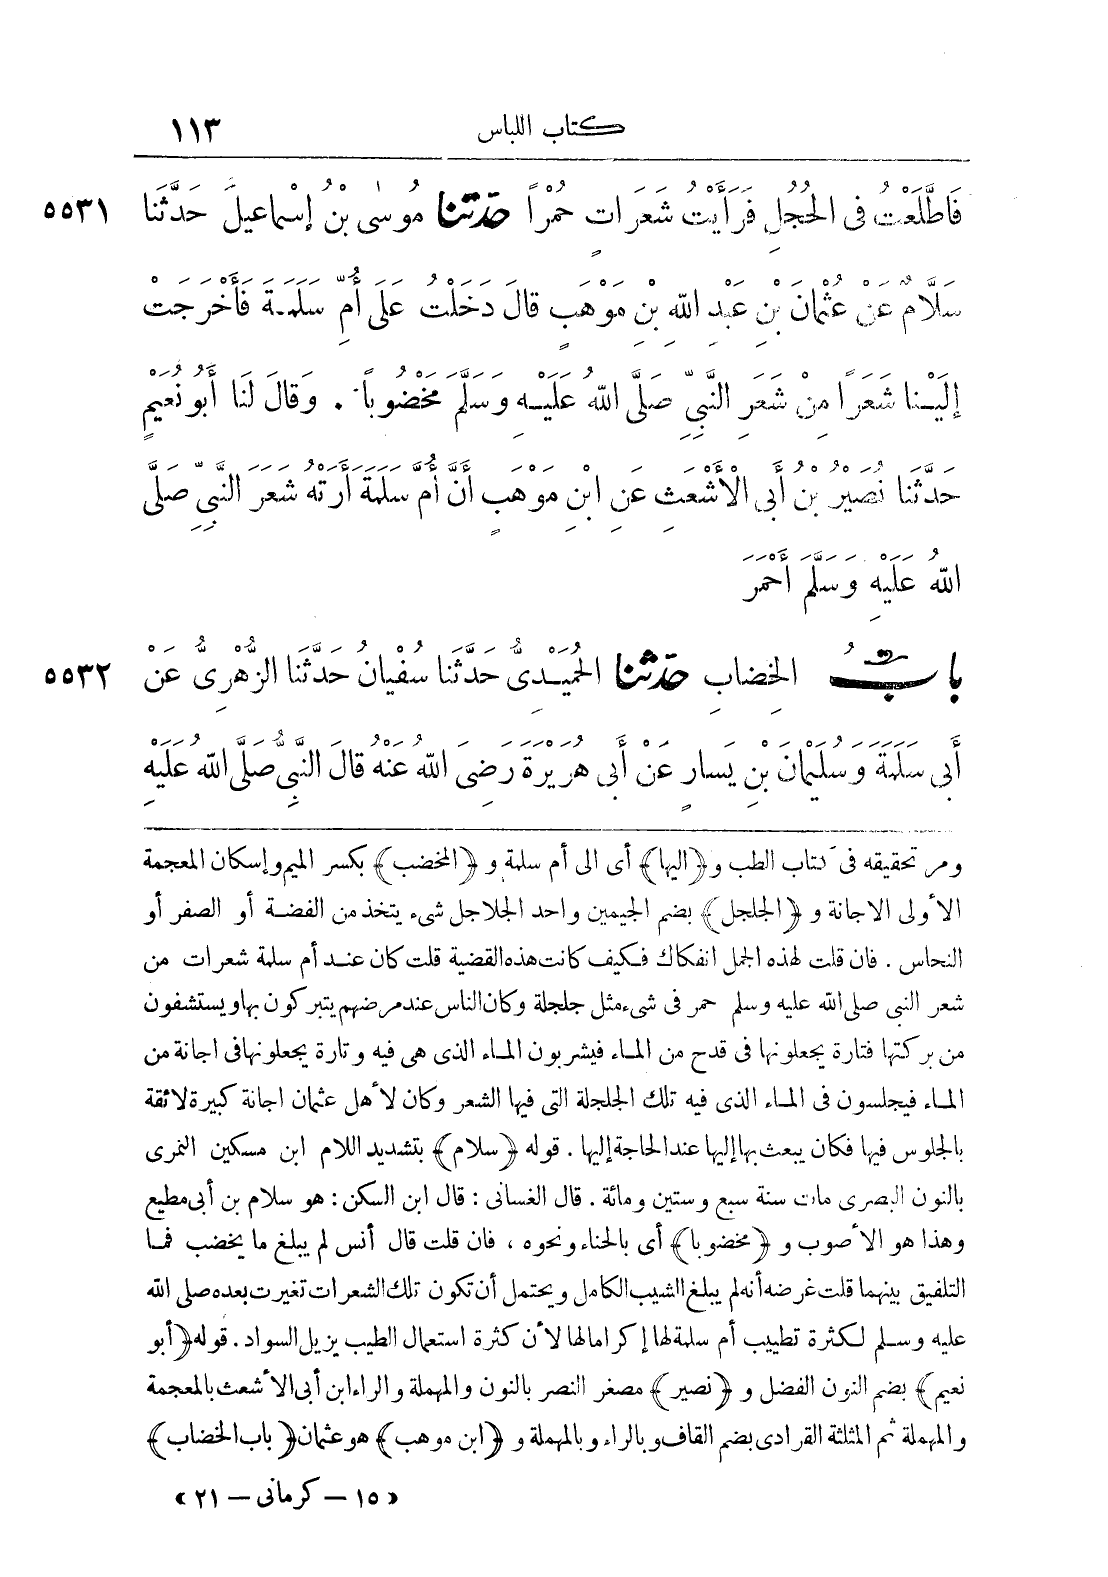 كتاب اللباس ١١٣
فَاطَّلَعْتُ فِى الْحُجُلِ فَرَأَيْتُ شَعَرَاتٍ حُمْرًا حَدَّثَنَا مُوسَى بْنُ إِسْمَاعِيلَ حَدَّثَنَا ٥٥٣١
سَلَّامٌ عَنْ عُثْمَانَ بْنِ عَبْدِ اللهِ بْنِ مَوْهَبٍ قَالَ دَخَلْتُ عَلَى أُمِّ سَلَمَةَ فَأَخْرَجَتْ
إِلَيْنَا شَعَرًا مِنْ شَعَرِ النَّبِىِّ صَلَّى اللهُ عَلَيْهِ وَسَلَّمَ مَخْضُوبًا . وَقَالَ لَنَا أَبُو نُعَيْمٍ
حَدَّثَنَا نُصَيْرُ بْنُ أَبِى الْأَشْعَثِ عَنِ ابْنِ مَوْهَبٍ أَنَّ أُمَّ سَلَمَةَ أَرَتْهُ شَعَرَ النَّبِىِّ صَلَّى
اللهُ عَلَيْهِ وَسَلَّمَ أَحْمَرَ
بابُ الخِضَابِ حَدَّثَنَا الْحُمَيْدِىُّ حَدَّثَنَا سُفْيَانُ حَدَّثَنَا الزُّهْرِىُّ عَنْ ٥٥٣٢
أَبِى سَلَمَةَ وَسُلَيْمَانَ بْنِ يَسَارٍ عَنْ أَبِى هُرَيْرَةَ رَضِىَ اللهُ عَنْهُ قَالَ النَّبِىُّ صَلَّى اللهُ عَلَيْهِ
ومر تحقيقه فى كتاب الطب و﴿اليها﴾ أى الى أم سلمة و ﴿المخضب﴾ بكسر الميم وإسكان المعجمة
الأولى الاجانة و ﴿الجلجل﴾ بضم الجيمين واحد الجلاجل شىء يتخذ من الفضة أو الصفر أو
النحاس . فان قلت لهذه الجمل انفكاك فكيف كانت هذه القضية قلت كان عند أم سلمة شعرات من
شعر النبى صلى الله عليه وسلم حمر فى شىء مثل جلجلة وكان الناس عند مرضهم يتبركون بها ويستشفون
من بركتها فتارة يجعلونها فى قدح من الماء فيشربون الماء الذى هى فيه وتارة يجعلونها فى اجانة من
الماء فيجلسون فى الماء الذى فيه تلك الجلجلة التى فيها الشعر وكان لأهل عثمان اجانة كبيرة لائقة
بالجلوس فيها فكان يبعث بها إليها عند الحاجة إليها . قوله ﴿سلام﴾ بتشديد اللام ابن مسكين النمرى
بالنون البصرى مات سنة سبع وستين ومائة . قال الغسانى : قال ابن السكن : هو سلام بن أبى مطيع
وهذا هو الأصوب و ﴿مخضوبا﴾ أى بالحناء ونحوه ، فان قلت قال أنس لم يبلغ ما يخضب فما
التلفيق بينهما قلت غرضه أنه لم يبلغ الشيب الكامل ويحتمل أن تكون تلك الشعرات تغيرت بعده صلى الله
عليه وسلم لكثرة تطييب أم سلمة لها إكراما لها لأن كثرة استعمال الطيب يزيل السواد . قوله ﴿أبو
نعيم﴾ بضم النون الفضل و ﴿نصير﴾ مصغر النصر بالنون والمهملة والراء ابن أبى الأشعث بالمعجمة
والمهملة ثم المثلثة القرادى بضم القاف وبالراء وبالمهملة و ﴿ابن موهب﴾ هو عثمان ﴿باب الخضاب﴾
« ١٥ — كرمانى — ٢١ »